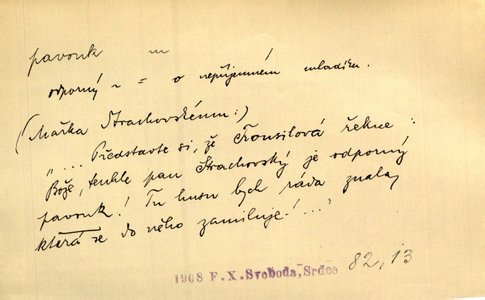 pavouk m
odporný ~ = o nepříjemném mladíku.
(Mařka Strachovskému:)
„... Představte si, že Frousilová řekne:
Bože, tenhle pan Strachovský je odporný
pavouk! Tu husu bych ráda znala,
která se do něho zamiluje!..."
1908 F. X. Svoboda, Srdce 82, 13